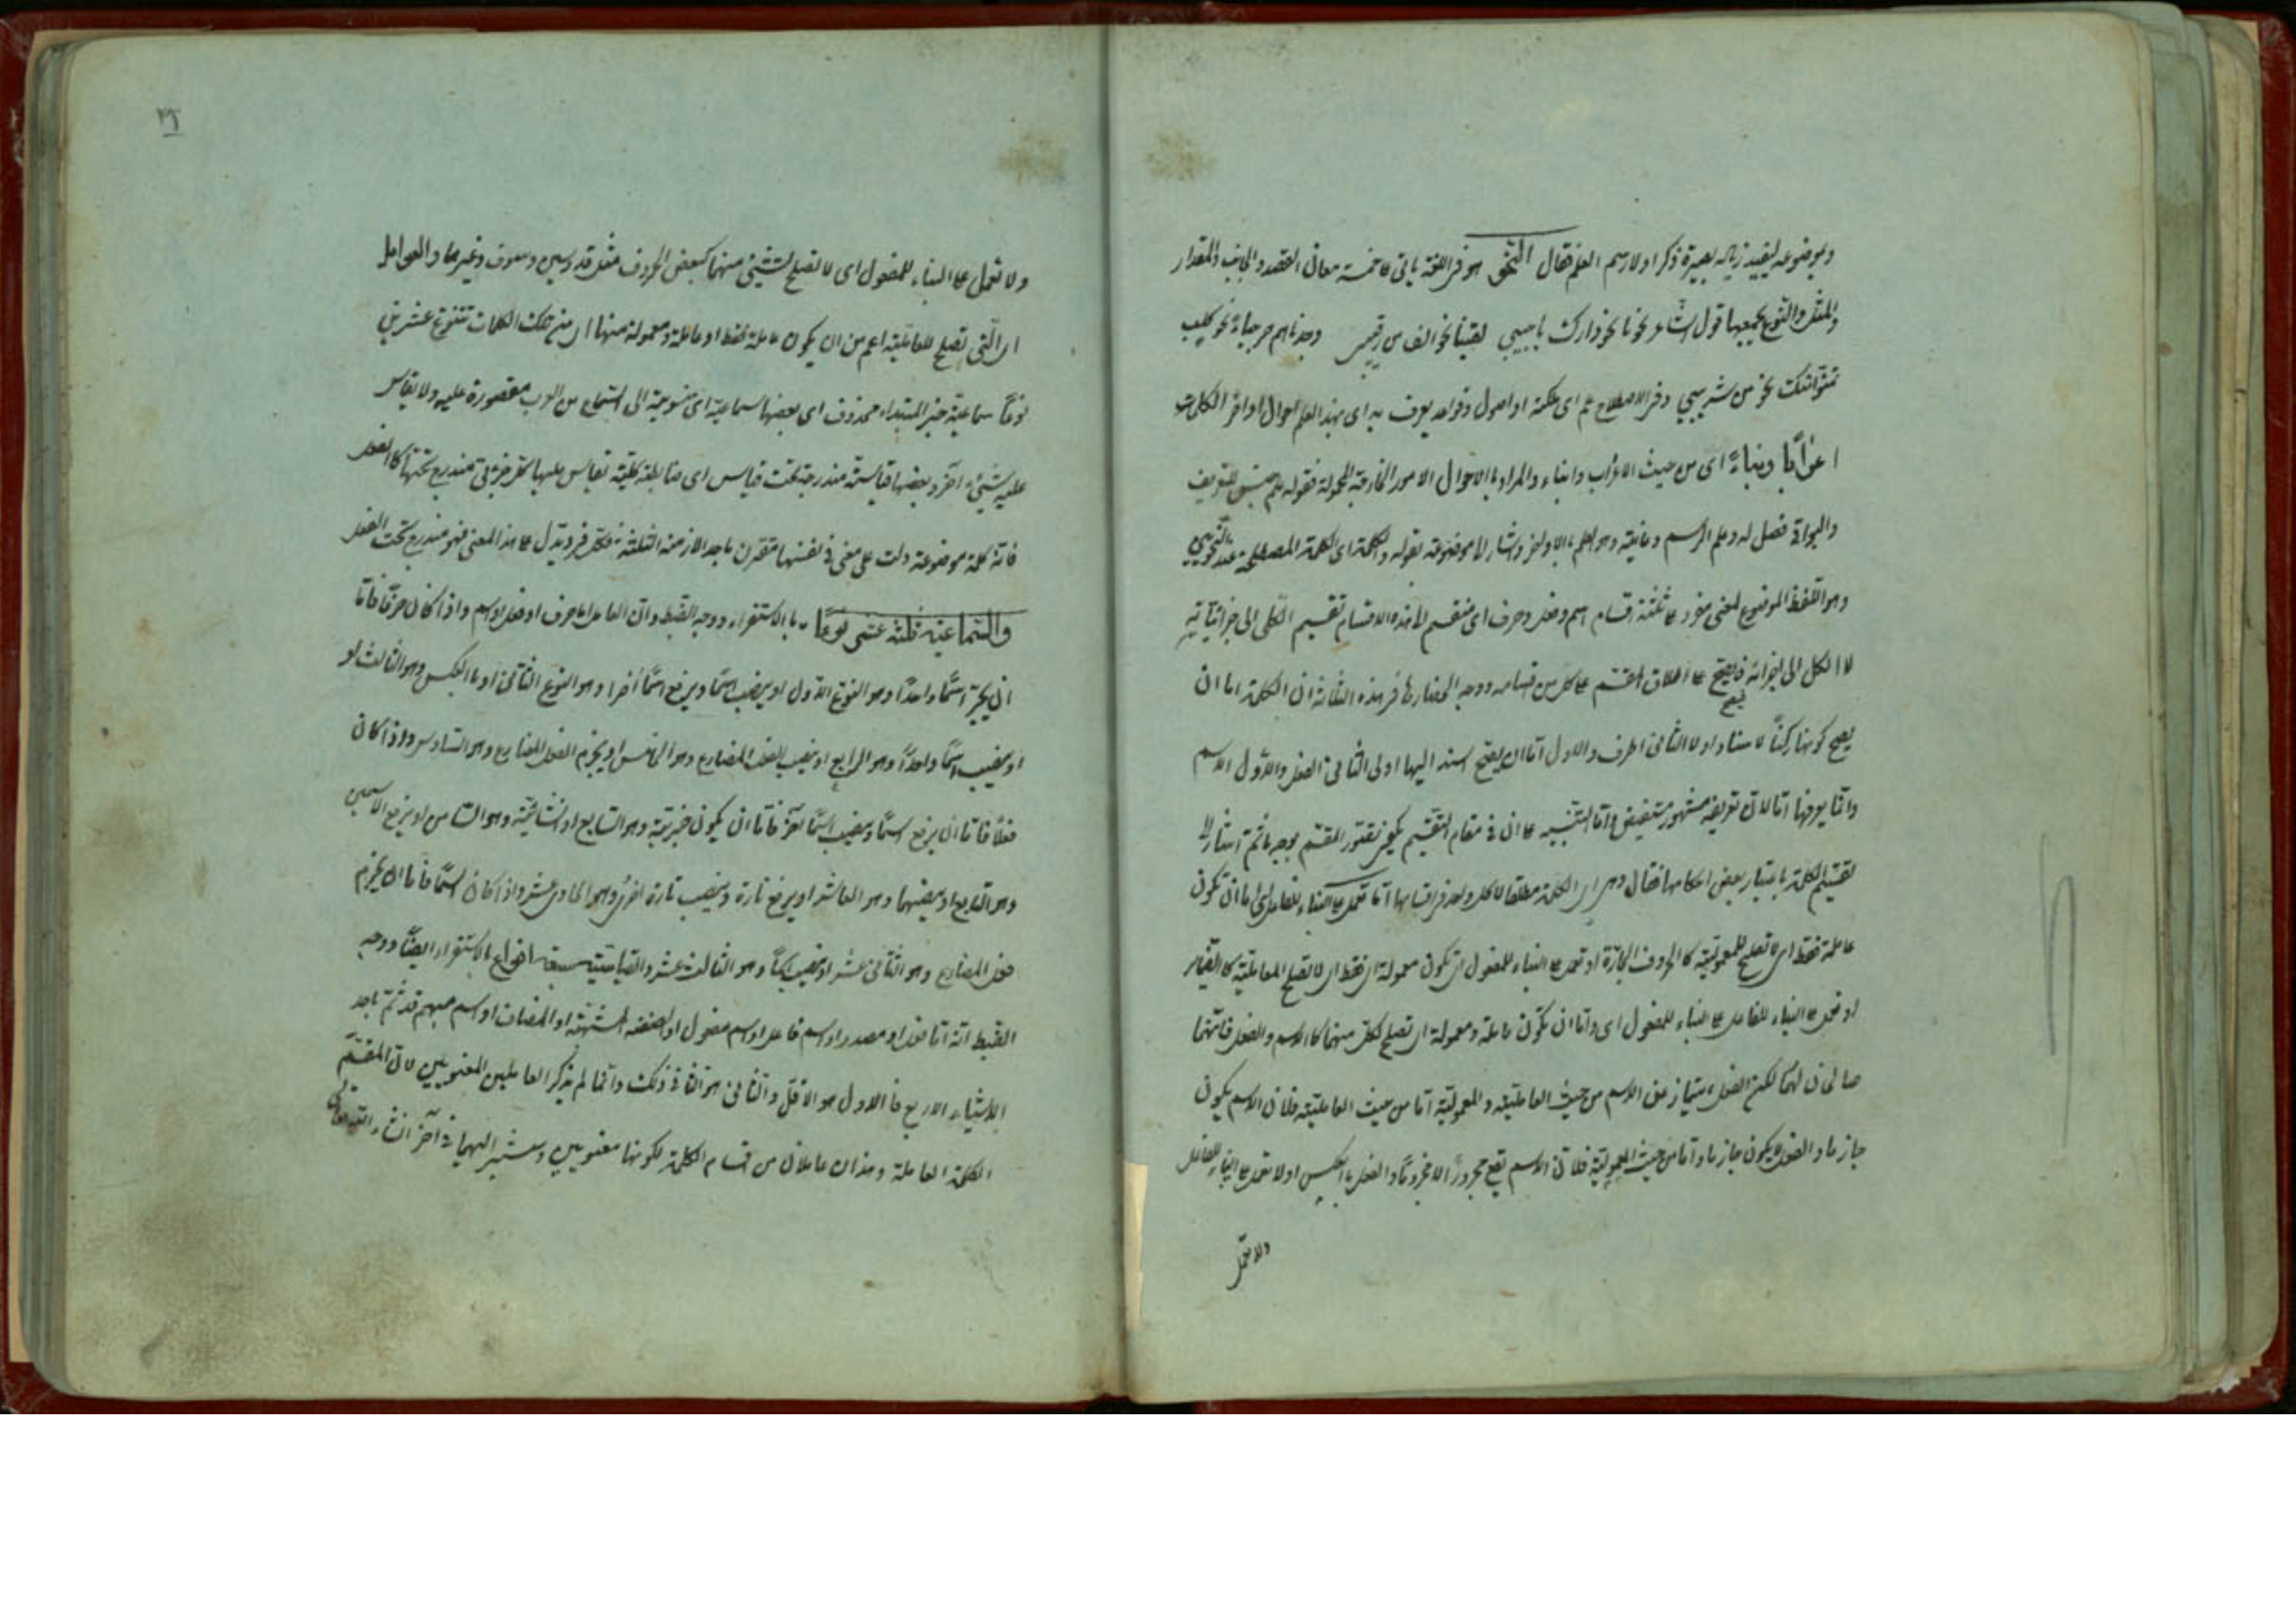 وموضوعه ليفيد زيادة بصيرة ذكر اولا رسم العلم فقال النحو هو فى اللغة ياتى على خمسة معان القصد والجانب والمقدار
والمثل والنوع يجمعها قول الشاعر نحونا نحو دارك يا حبيبي لقينا نحو الف من رقيب وجدناهم جياعا نحو كلب
تمنوا منك نحو من شريب وفى الاصطلاح علم اى ملكة او اصول وقواعد يعرف به اى بهذا العلم احوال اواخر الكلمات
اعرابا وبناء اى من حيث الاعراب والبناء والمراد بالاحوال الامور الخارجة المحمولة فقوله علم جنس للتعريف
والبواقى فصل له وعلم الرسم وغايته وهو العلم بالاواخر واشار الى موضوعه بقوله والكلمة اى الكلمة المصطلحة عند النحويين
وهو اللفظ الموضوع لمعنى مفرد على ثلثة اقسام اسم وفعل وحرف اى منقسم الى هذه الاقسام تقسيم الكلى الى جزئياته
لا الكل الى اجزائه فيصح على اطلاق المقسم على كل من اقسامه ووجه انحصارها فى هذه الثلاثة ان الكلمة اما ان
يصح كونها ركنا للاسناد او لا الثانى الحرف والاول اما ان يصح اسند اليها او لا الثانى الفعل والاول الاسم
وانما يعرفها اما لان تعريفه مشهور مستفيض واما للتنبيه على ان فى مقام التقسيم يكفى تصور المقسم بوجه ما ثم اشار الى
تقسيم الكلمة باعتبار بعض احكامها فقال وهى اى الكلمة مطلقا لا كل واحد من اقسامها اما تعمل على البناء للفاعل اى اما ان تكون
عاملة فقط اى لا تصلح للمعمولية كالحروف الجارة او تعمل على البناء للمفعول اى تكون معمولة فقط اى لا تصلح للعاملية كالضمائر
او تعمل على البناء للفاعل على البناء للمفعول اى واما ان تكون عاملة ومعمولة اى تصلح لكل منهما كالاسم والفعل فانهما
صالحان لهما لكن الفعل يمتاز عن الاسم من حيث العاملية والمعمولية اما من حيث العاملية فلان الاسم يكون
جازما والفعل لا يكون جازما واما من حيث المعمولية فلان الاسم يقع مجرورا لا مجزوما والفعل بالعكس او لا تعمل على البناء للفاعل
ولا تعمل
ولا تعمل على البناء للمفعول اى لا تصلح لشيئ منهما كبعض الحروف مثل قد وسين وسوف وغيرها والعوامل
اى التى تصلح للعاملية اعم من ان يكون عاملة فقط او عاملة ومعمولة منها اى من تلك الكلمات تتنوع عشرين
نوعا سماعية خبر المبتداء محذوف اى بعضها سماعية اى منسوبة الى استماع من العرب مقصورة عليه ولا يقاس
عليه شيئ اخر وبعضها قياسية مندرجة تحت قياس اى ضابطة كلية تقاس عليها كل جزئى تندرج تحتها كالفعل
فانه كلمة موضوعة دلت على معنى فى نفسها مقترن باحد الازمنة الثلثة فكل فرد تدل على هذا المعنى فهو مندرج تحت الفعل
والسماعية ثلثة عشر نوعا بالاستقراء ووجه الضبط ان العامل اما حرف او فعل او اسم واذا كان حرفا فاما
ان يجر اسما واحدا وهو النوع الاول او ينصب اسما ويرفع اسما اخرا وهو النوع الثانى او بالعكس وهو الثالث او
او ينصب اسما واحدا وهو الرابع او ينصب الفعل المضارع وهو الخامس او يجزم الفعل المضارع وهو السادس واذا كان
فعلا فاما ان يرفع اسما وينصب اسما اخر فاما ان يكون خبرية وهو السابع او انشائية وهو الثامن او يرفع الاسمين
وهو التاسع او ينصبهما وهو العاشر او يرفع تارة وينصب تارة اخرى وهو الحادى عشر واذا كان اسما فاما ان يجزم
فعل المضارع وهو الثانى عشر او ينصب اسما وهو الثالث عشر والقياسية سبعة انواع بالاستقراء ايضا ووجه
الضبط انه اما فعل او مصدر او اسم فاعل او اسم مفعول او الصفة المشبهة او المضاف او اسم مبهم قد تم باحد
الاشياء الاربع فالاول هو الاول والثانى هو الثا فى ذلك وانما لم يذكر العاملين المعنويين لان المقسم
الكلمة العاملة وهذان عاملان من اقسام الكلمة لكونها معنويين وسنشير اليهما فى آخر انشاء الله تعالى